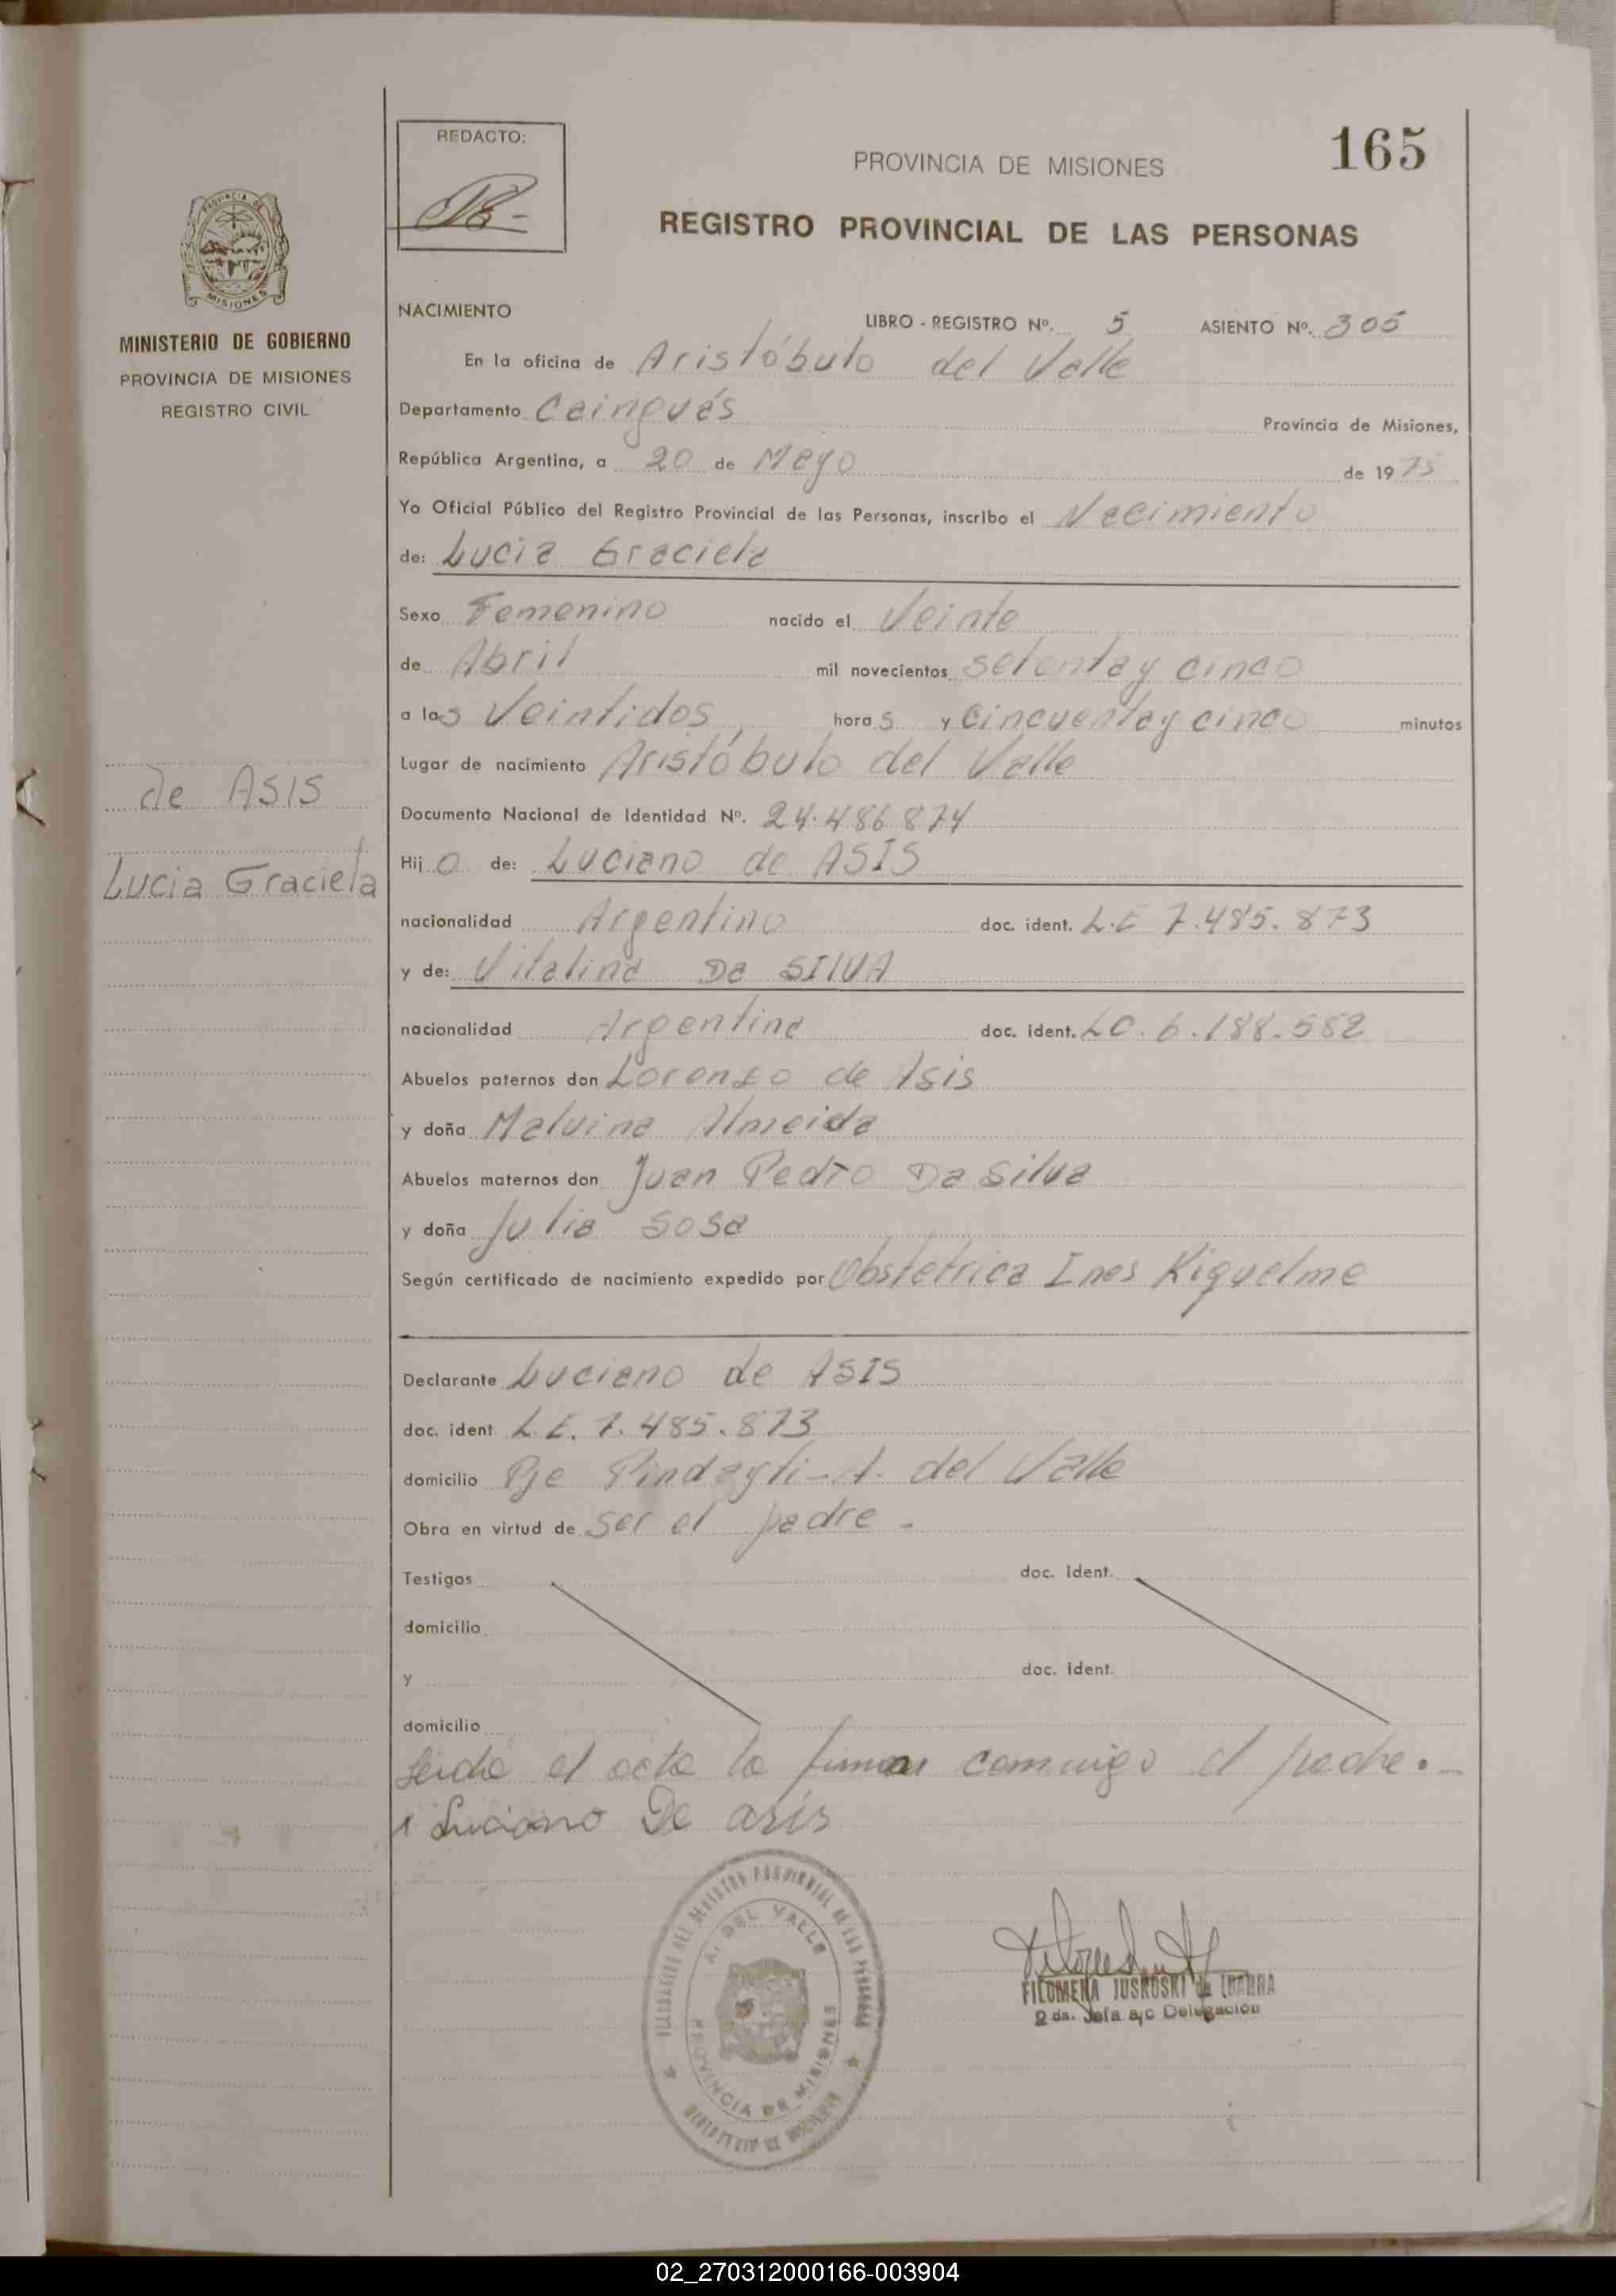 165
REDACTO:
PROVINCIA DE MISIONES
REGISTRO PROVINCIAL DE LAS PERSONAS
MISIONES
MINISTERIO DE GOBIERNO
PROVINCIA DE MISIONES
REGISTRO CIVIL
NACIMIENTO
LIBRO - REGISTRO Nº. 5 ASIENTO Nº. 305
En la oficina de Aristóbulo del Valle
Departamento Cainguás Provincia de Misiones,
República Argentina, a 20 de Mayo de 1975
Yo Oficial Público del Registro Provincial de las Personas, inscribo el Nacimiento
de: Lucia Graciela
Sexo Femenino nacido el Veinte
de Abril mil novecientos setenta y cinco
a las Veintidos hora s y Cincuenta y cinco minutos
Lugar de nacimiento Aristóbulo del Valle
de ASIS
Lucia Graciela
Documento Nacional de Identidad Nº. 24.486.874
Hij o de: Luciano de ASIS
nacionalidad Argentino doc. ident. L.E 7.485.873
y de: Vitalina Da SILVA
nacionalidad Argentina doc. ident. LC. 6.188.582
Abuelos paternos don Lorenzo de Asis
y doña Malvina Almeida
Abuelos maternos don Juan Pedro Da Silva
y doña Julia Sosa
Según certificado de nacimiento expedido por Obstetrica Ines Riquelme
Declarante Luciano de ASIS
doc. ident L.E. 7.485.873
domicilio Pje Pindayti - A. del Valle
Obra en virtud de ser el padre -
Testigos doc. Ident.
domicilio
y doc. ident.
domicilio
Leido el acta la firma conmigo el padre.-
Luciano De asis
A. DEL VALLE
PROVINCIA DE MISIONES
FILOMENA JUSKOSKI de IBARRA
2 da. Jefa a/c Delegación
02_270312000166-003904